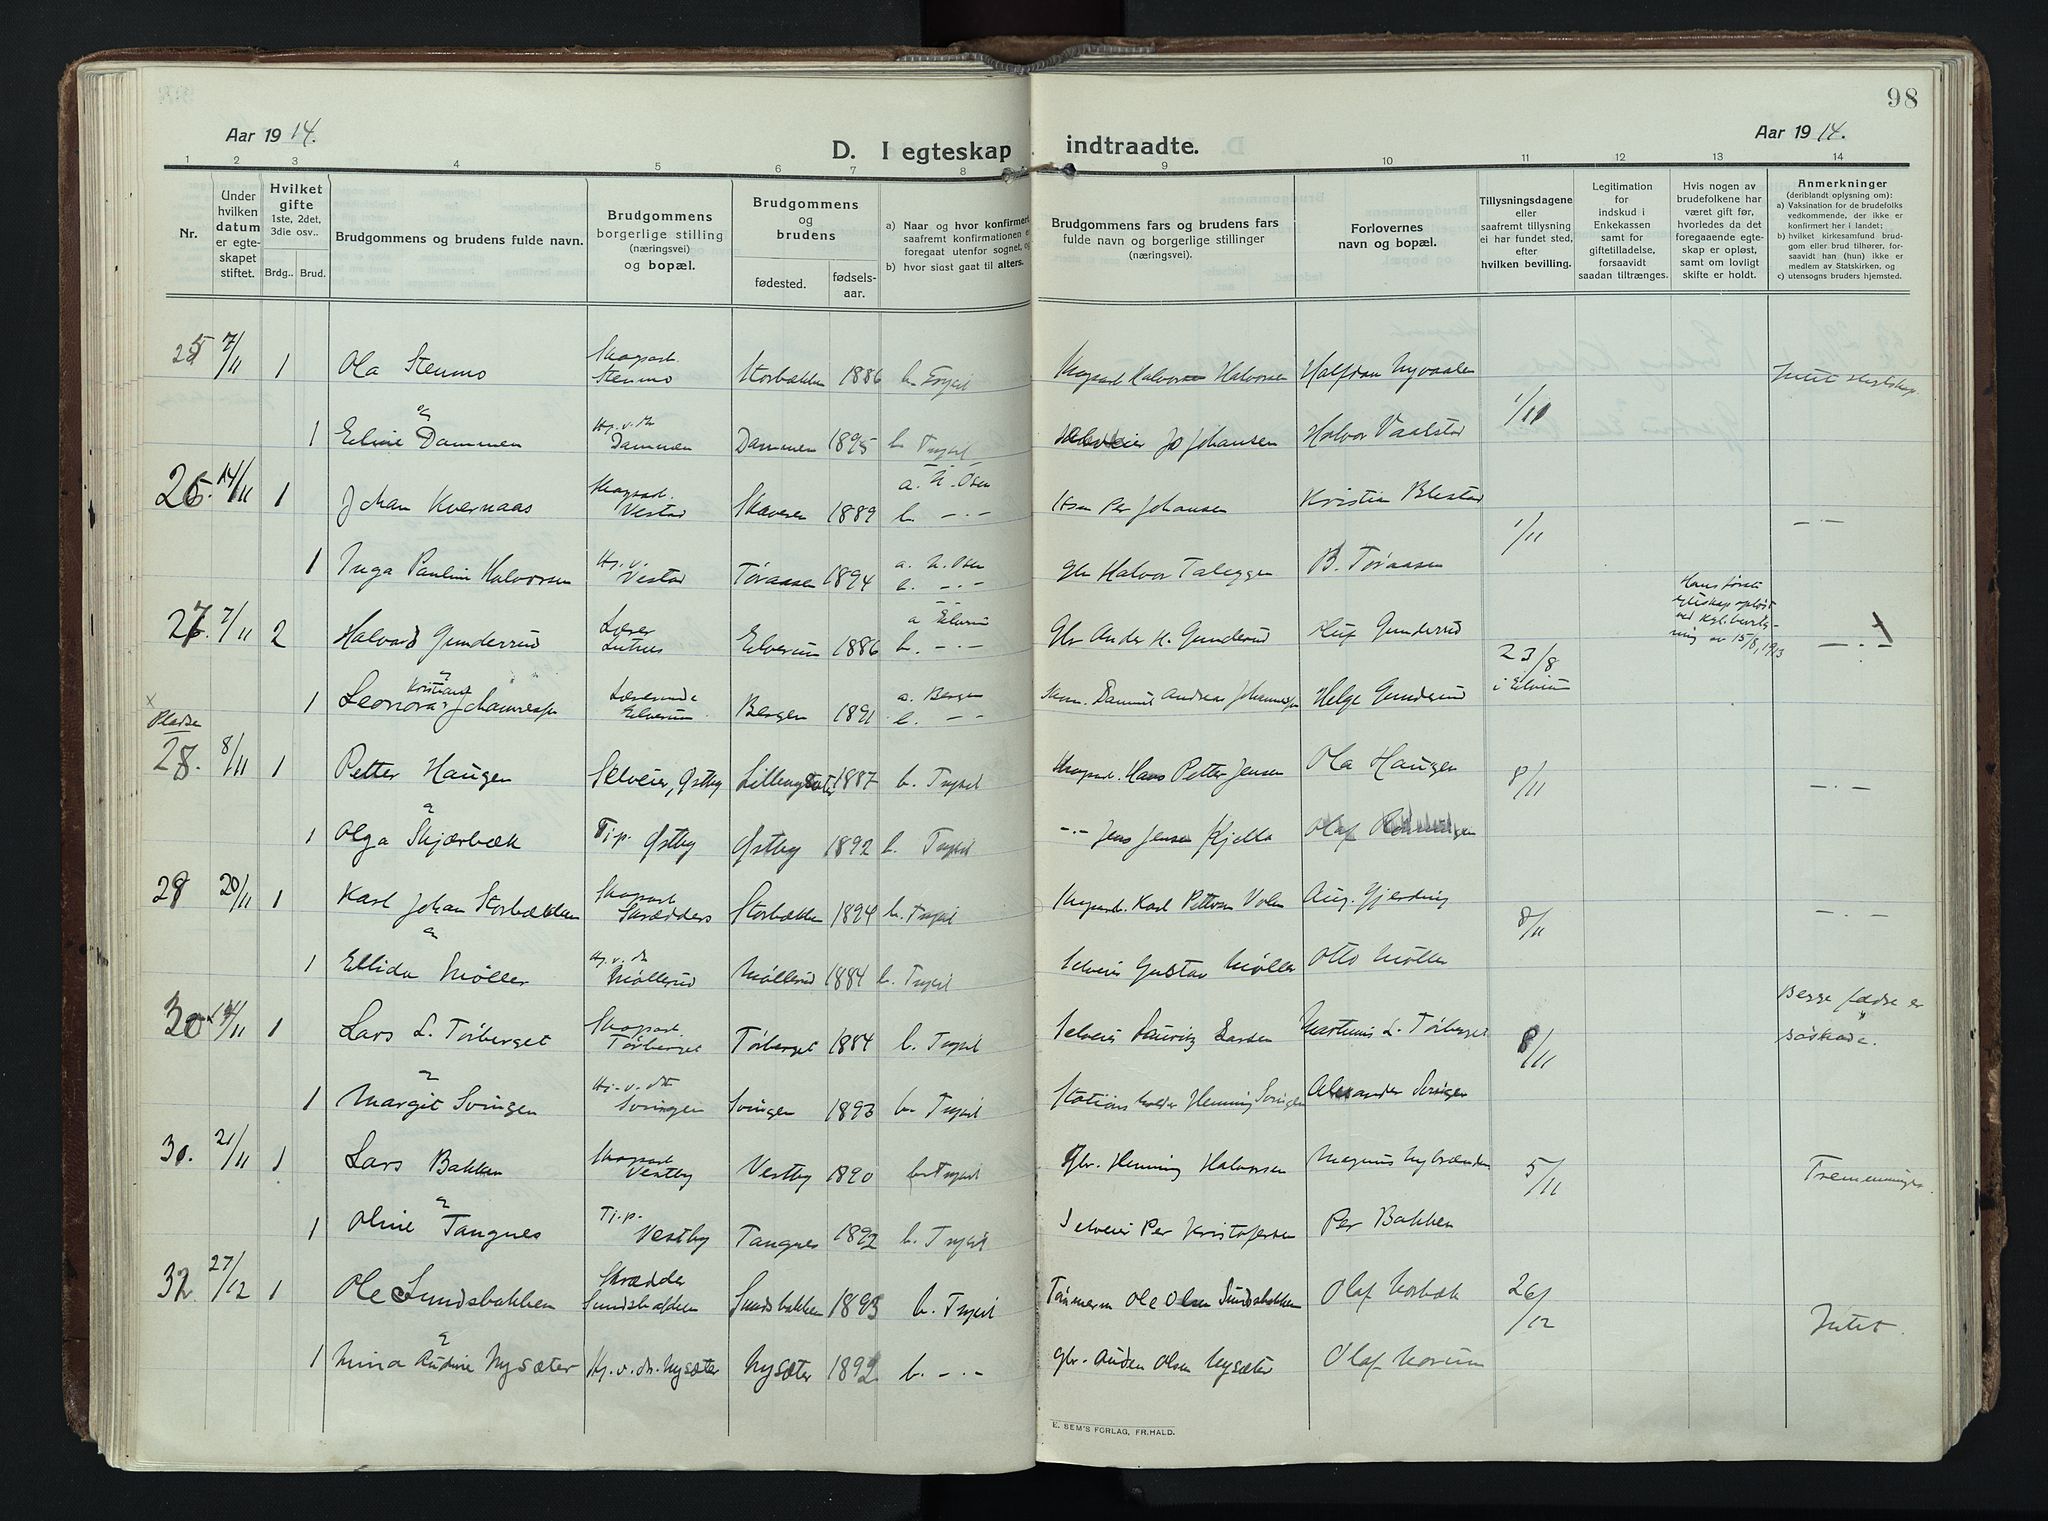 98
Aar 1914.
D. I egteskap indtraadte.
Aar 1914.
1 2 3 4 5 6 7 8 9 10 11 12 13 14
Nr.
Under hvilken datum er egteskapet stiftet.
Hvilket gifte
1ste, 2det, 3die osv..
Brdg.. Brud.
Brudgommens og brudens fulde navn.
Brudgommens borgerlige stilling (næringsvei) og bopæl.
Brudgommens og brudens
fødested.
fødsels-aar.
a) Naar og hvor konfirmert saafremt konfirmationen er foregaat utenfor sognet, og
b) hvor sidst gaat til alters.
Brudgommens fars og brudens fars fulde navn og borgerlige stillinger (næringsvei).
Forlovernes navn og bopæl.
Tillysningsdagene eller saafremt tillysning ei har fundet sted, efter hvilken bevilling.
Legitimation for indskud i Enkekassen samt for giftetilladelse, forsaavidt saadan tiltrænges.
Hvis nogen av brudefolkene har været gift før, hvorledes da det foregaaende egteskap er opløst, samt om lovligt skifte er holdt.
Anmerkninger
(deriblandt oplysning om):
a) Vaksination for de brudefolks vedkommende, der ikke er konfirmert her i landet;
b) hvilket kirkesamfund brudgom eller brud tilhører, forsaavidt han (hun) ikke er medlem av Statskirken, og
c) utensogns bruders hjemsted.
25 7/11 1 Ola Stenmo Skogsarb. Stenmo Storbækken 1886 b. Trysil Skogsarb. Halvor Halvorsen Halfdan Nyvaalen 1/11 Intet slegtskap
1 Eline Dammen Hj. v. do Dammen Dammen 1895 b. Trysil Selveier Jo Johansen Halvor Vaalstad
26. 14/11 1 Johan Kvernaas Skogsarb. Vestad 1889 a. N. Osen b. -·- Per Johansen Kristian Blestad 1/11 -·-
1 Inga Pauline Halvorsen Hj. v. Vestad Tøraasen 1894 a. N. Osen b. -·- Gbr Halvor Talegger B. Tøraasen
27. 7/11 2 Halvard Gunderud Lærer Lutnes Elverum 1886 a Elverum b. -·- Gbr Anders H. Gunderud Oluf Gunderud 23/8 i Elverum Hans første egteskap opløst ved Kgl. bevilgning av 15/8, 1913 -·-
1 Leonora Kristiane Johannessen Lærerinde Elverum Bergen 1891 a. Bergen b. -·- Andreas Johannessen Helge Gunderud
x Pladsen
28. 8/11 1 Petter Haugen Selveier, Østby 1887 b. Trysil Skogsarb. Hans Petter Jensen Ola Haugen 8/11 -·-
1 Olga Skjærbæk Tj.p. Østby Østby 1892 b. Trysil -·- Jens Jensen Kjølla Olaf
28 20/11 1 Karl Johan Storbækken Skogsarb. Skrædders Storbækken 1894 b. Trysil Skogsarb. Karl Pettersen Volen Aug. Gjerding 8/11 -·-
1 Ellida Møller Hj. v. do Møllerud Møllerud 1884 b. Trysil Selveier Gustav Møller Otto Møller
30 14/11 1 Lars L. Tørberget Skogsarb. Tørberget Tørberget 1884 b. Trysil Selveier Lauritz Larsen Martinus L. Tørberget 8/11 Begge fædre er søskende.
1 Margit Svingen Hj. v. do Svingen Svingen 1893 b. Trysil Stationsholder Henning Svingen Alexander Svingen
30. 21/11 1 Lars Bakken Skogsarb. Vestby Vestby 1890 b. Trysil Gbr. Henning Halvorsen Magnus Nybrænden 5/11 Tremenninger.
1 Oline Tangnes Tj.p. Vestby Tangnes 1892 b. Trysil Selveier Per Kristofersen Per Bakken
32 27/12 1 Ole Sundsbakken Skrædder Sundsbakken Sundsbakken 1893 b. Trysil Tømmerm Ole Olsen Sundsbakken Olaf Norbæk 26/12 Intet.
1 Mina Audine Nysæter Hj. v. do. Nysæter Nysæter 1892 b. -·- gbr. Auden Olsen Nysæter Olaf Norum
E. SEM'S FORLAG, FR.HALD.